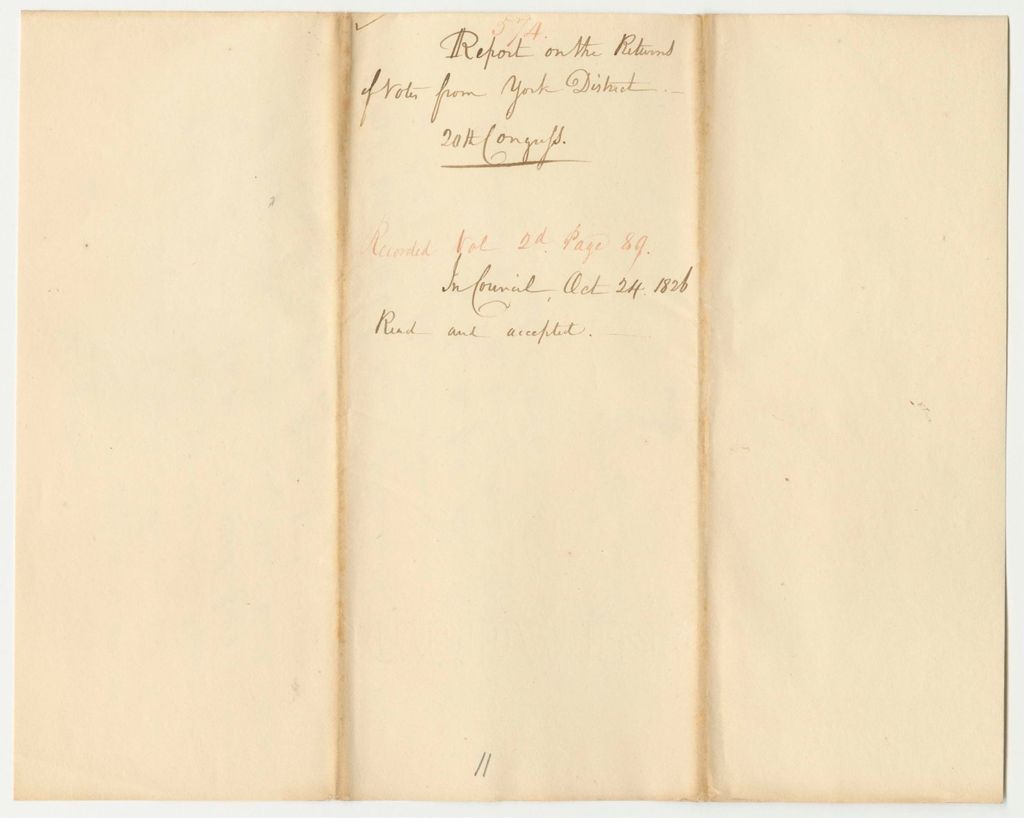 574.
Report on the Returns
of Votes from York District. —
20th Congress.
Recorded Vol 2d. Page 89.
In Council, Oct 24. 1826
Read and accepted. —
11